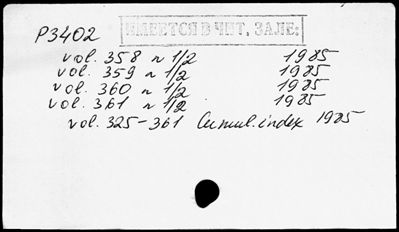 P3402
ИМЕЕТСЯ В ЧИТ. ЗАЛЕ:
vol. 358 n 1/2 1985
vol. 359 n 1/2 1985
vol. 360 n 1/2 1985
vol. 361 n 1/2 1985
vol. 325-361 Cumul. index 1985